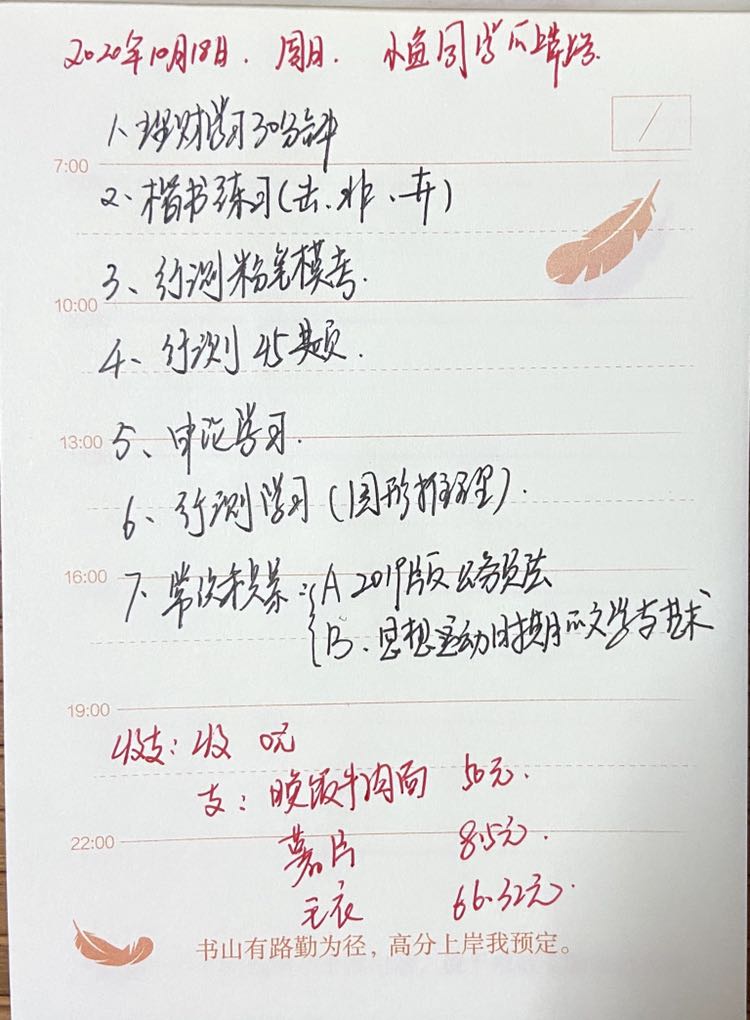 2020年10月18日. 周日. 小鱼同学的上岸路.
/
1、理财学习30分钟
7:00
2、楷书练习(击、非、卉)
3、行测粉笔模考.
10:00
4、行测45题.
13:00
5、申论学习.
6、行测学习(图形推理).
16:00
7、常识积累: A 2019版公务员法
B、思想运动时期的文学与艺术
19:00
收支: 收 0元
支: 晚饭牛肉面 50元.
22:00
薯片 8.5元.
毛衣 66.32元.
书山有路勤为径，高分上岸我预定。